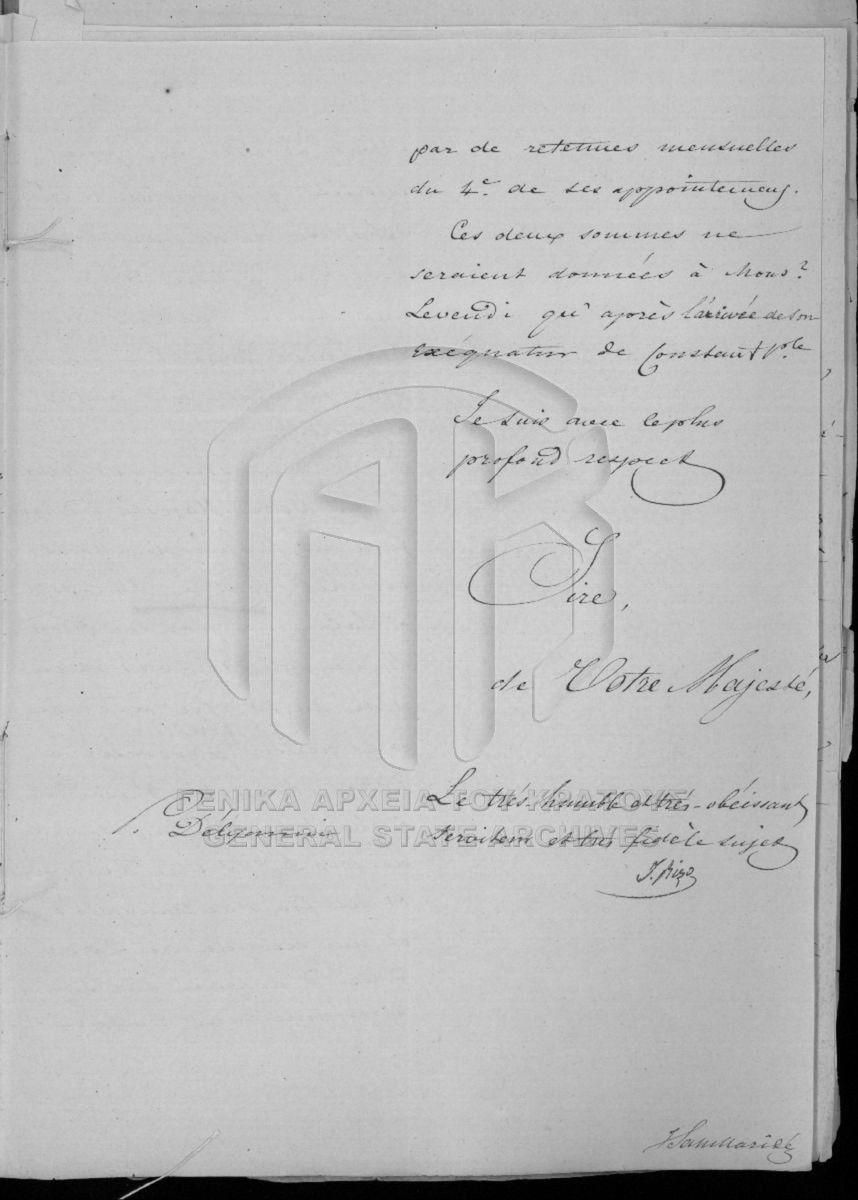 par de retenues mensuelles
du 4e. de ses appointemens.
Ces deux sommes ne
seraient données à Monsr
Levendi qu'après l'arivée de son
exéquatur de Constantple
Je suis avec le plus
profond respect
Sire,
de Votre Majesté,
Le trés-humble et trés-obéissant
serviteur et trés fidèle sujet
J. Rizo
P. Délyannis
ΓΕΝΙΚΑ ΑΡΧΕΙΑ ΤΟΥ ΚΡΑΤΟΥΣ
GENERAL STATE ARCHIVES